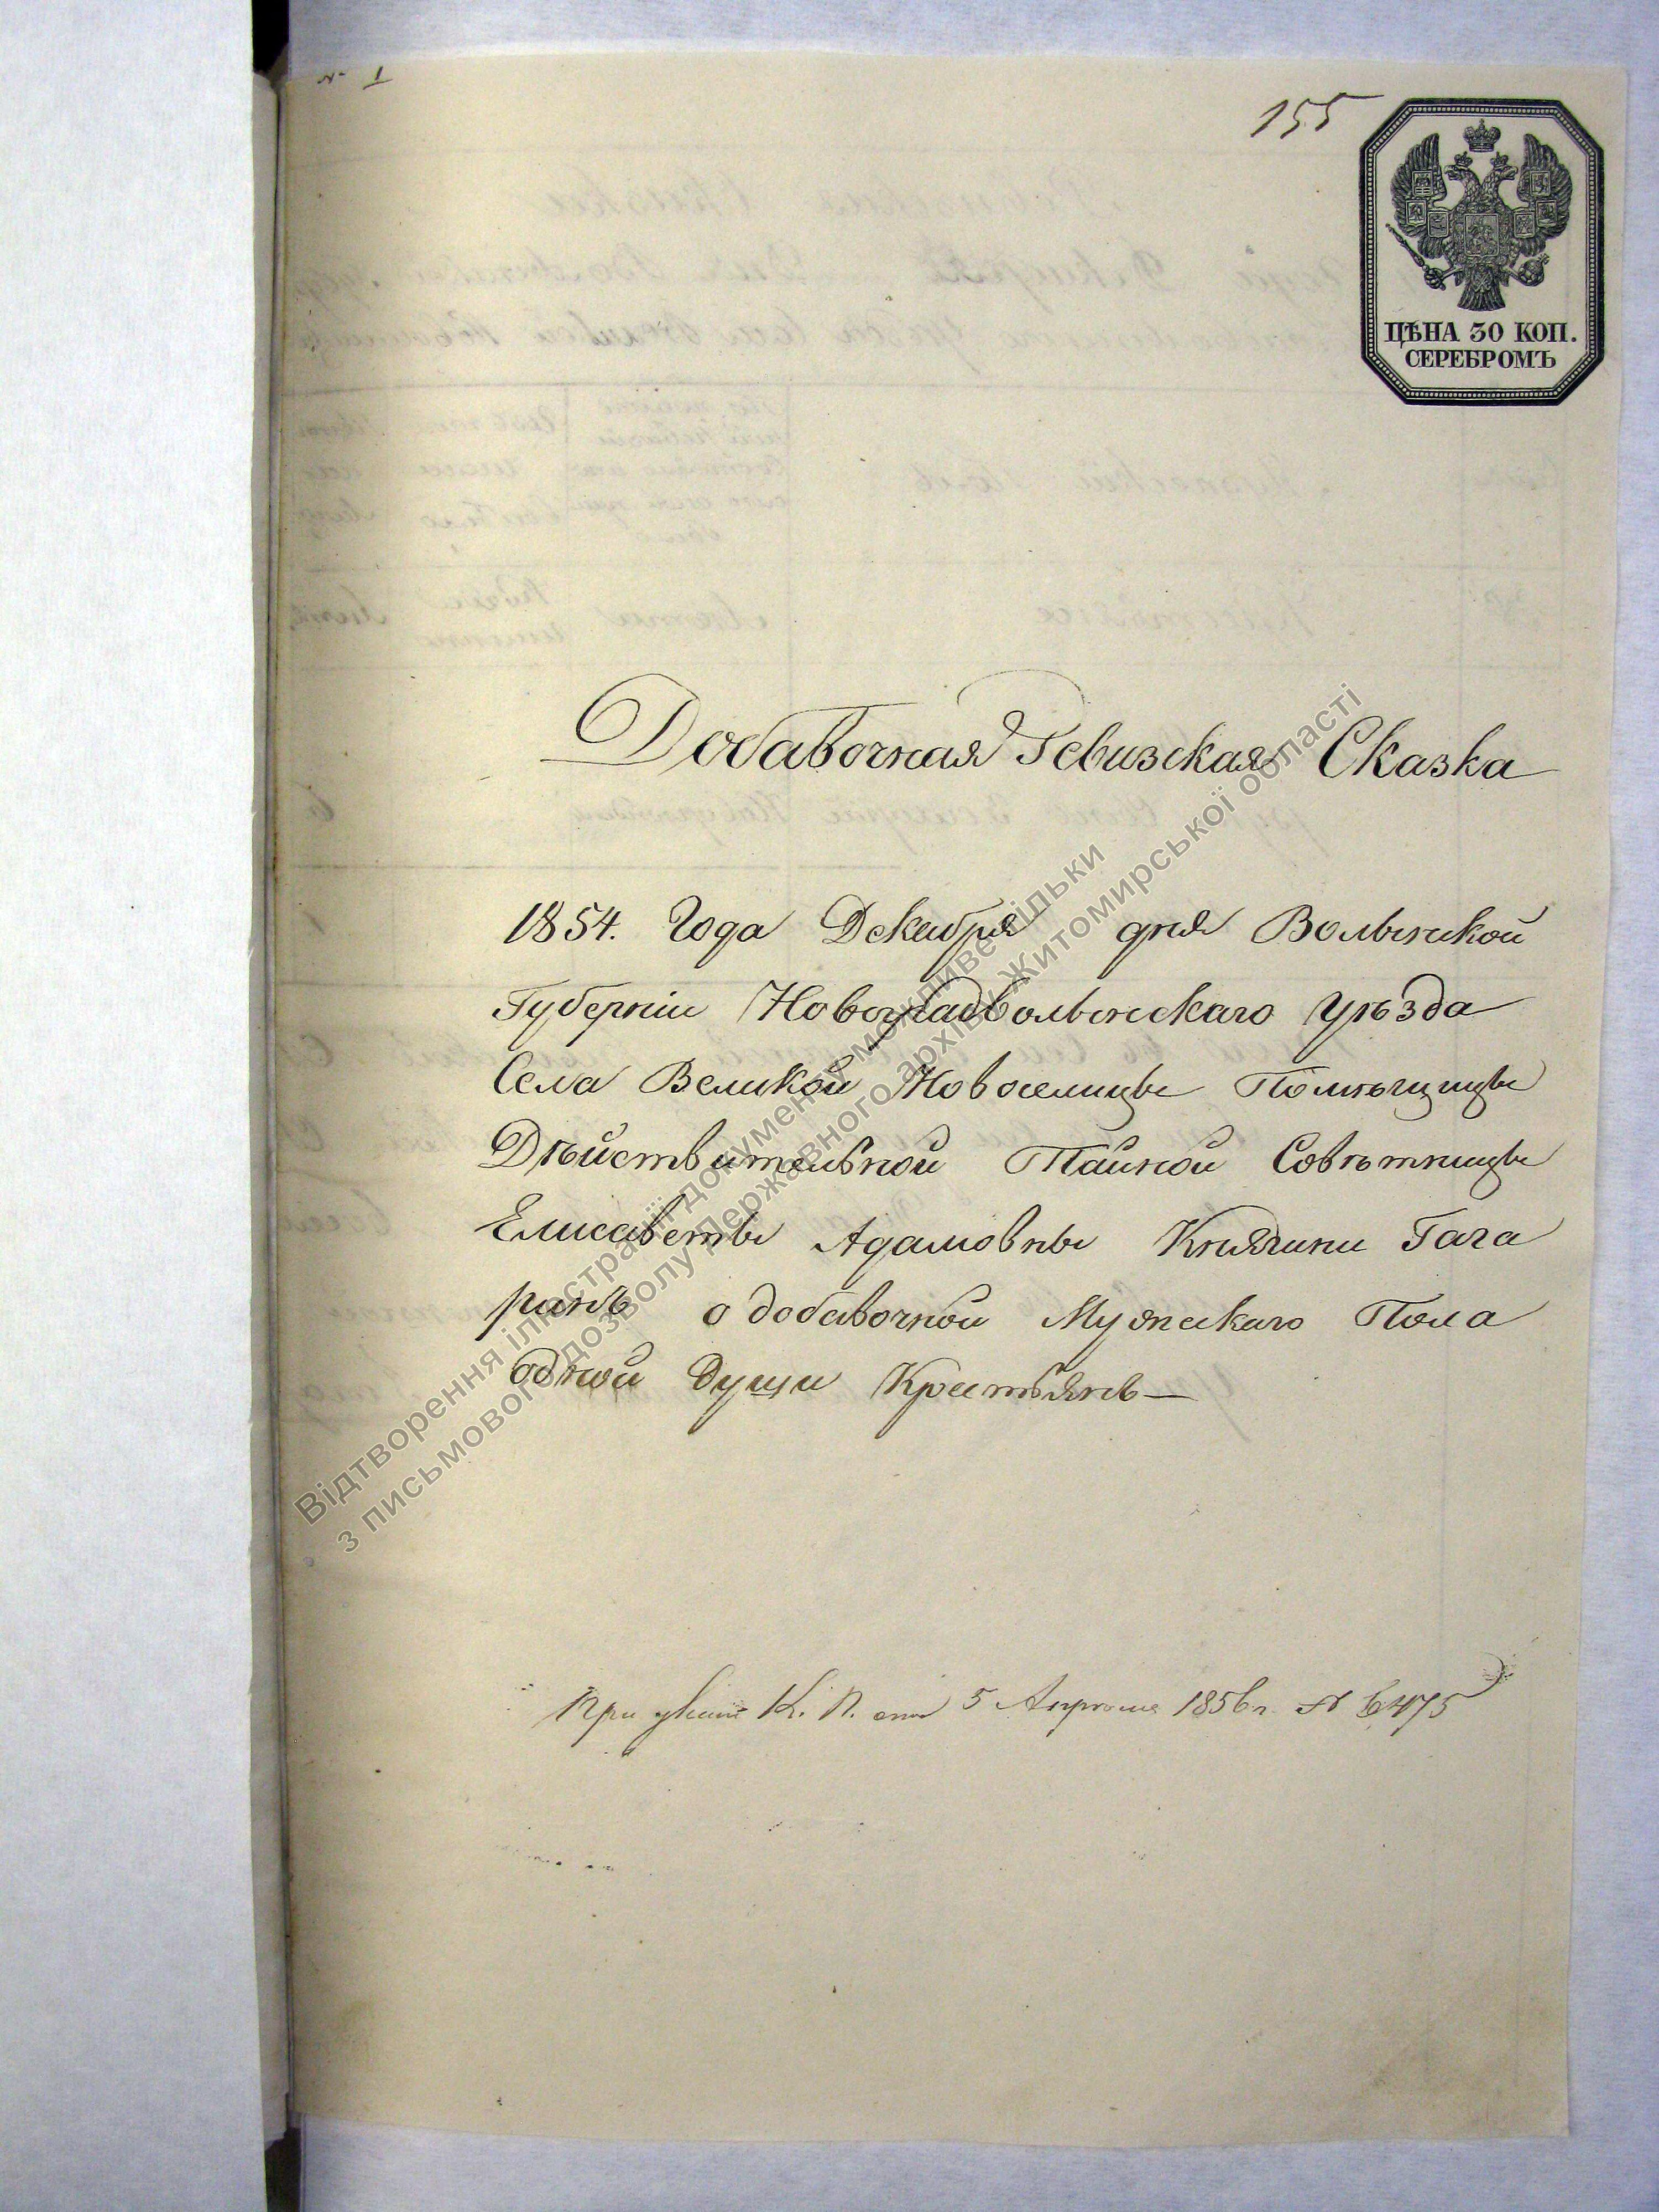 № 1
155
ЦѢНА 30 КОП.
СЕРЕБРОМЪ
Добавочная Ревизская Сказка
1854. Года Декабря дня Волынской
Губерніи Новоградволынскаго Уѣзда
Села Великой Новоселицы Помѣщицы
Дѣйствительной Тайной Совѣтницы
Елисаветы Адамовны Княгини Гага
ринъ о добавочной Мужескаго Пола
одной души Крестьянъ—
При указѣ К. П. отъ 5 Апрѣля 1856 г. № 6475
Відтворення ілюстрації документу можливе тільки
з письмового дозволу Державного архіву Житомирської області